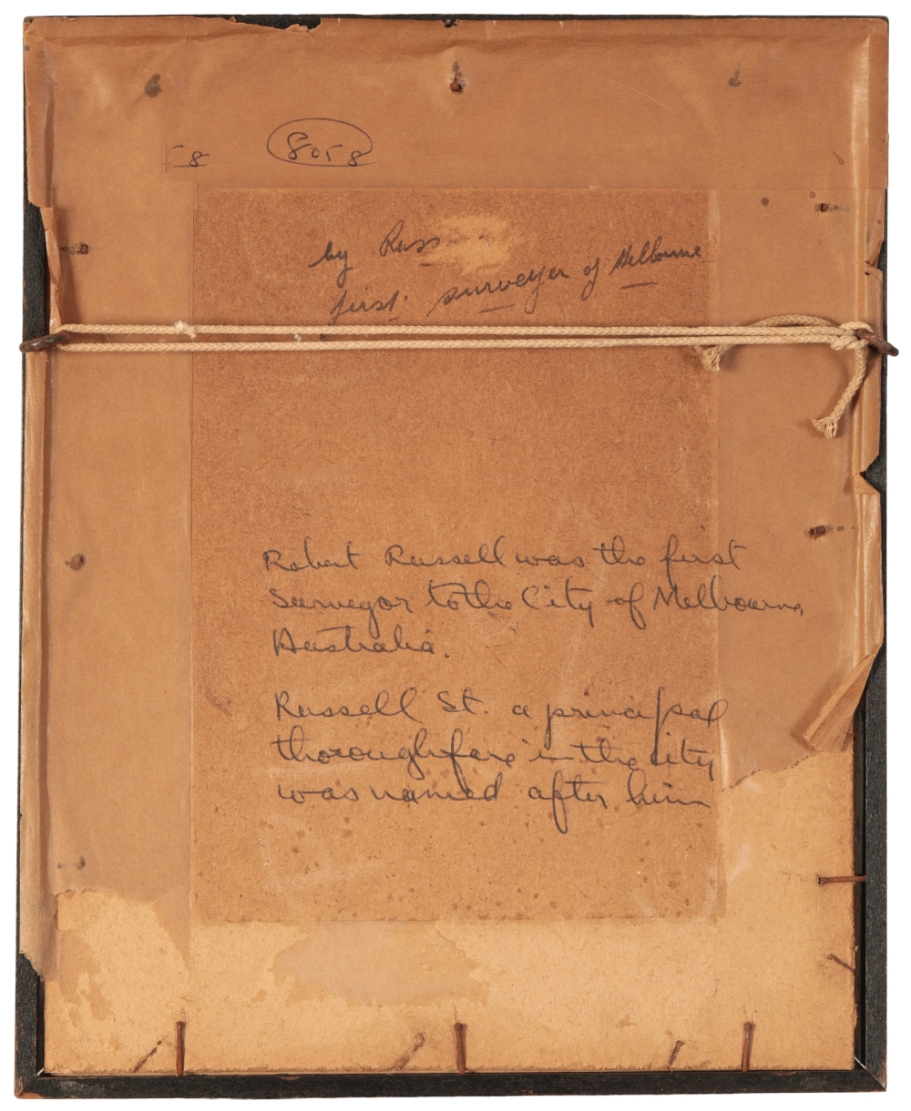 58 8058
by Russ
first surveyor of Melbourne
Robert Russell was the first
Surveyor to the City of Melbourne,
Australia.
Russell St. a principal
thoroughfare in the city
was named after him